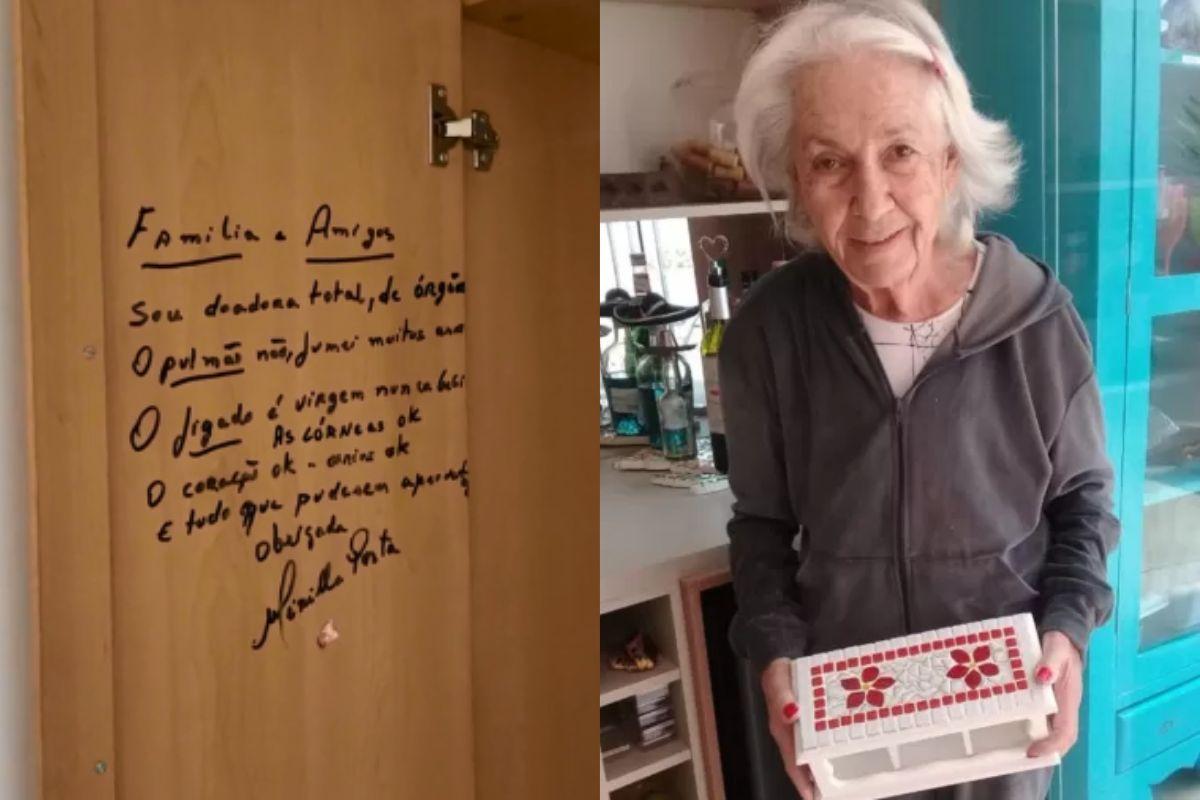 Familia e Amigos
Sou doadora total, de órgão
O pulmão não, fumei muitos
O figado é virgem nunca
As córneas ok
O coração ok - ok
E tudo que puderem
Obrigada
Porta